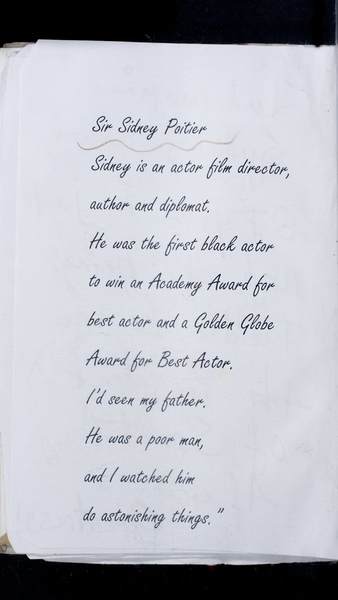 Sir Sidney Poitier
Sidney is an actor film director,
author and diplomat.
He was the first black actor
to win an Academy Award for
best actor and a Golden Globe
Award for Best Actor.
I'd seen my father.
He was a poor man,
and I watched him
do astonishing things."